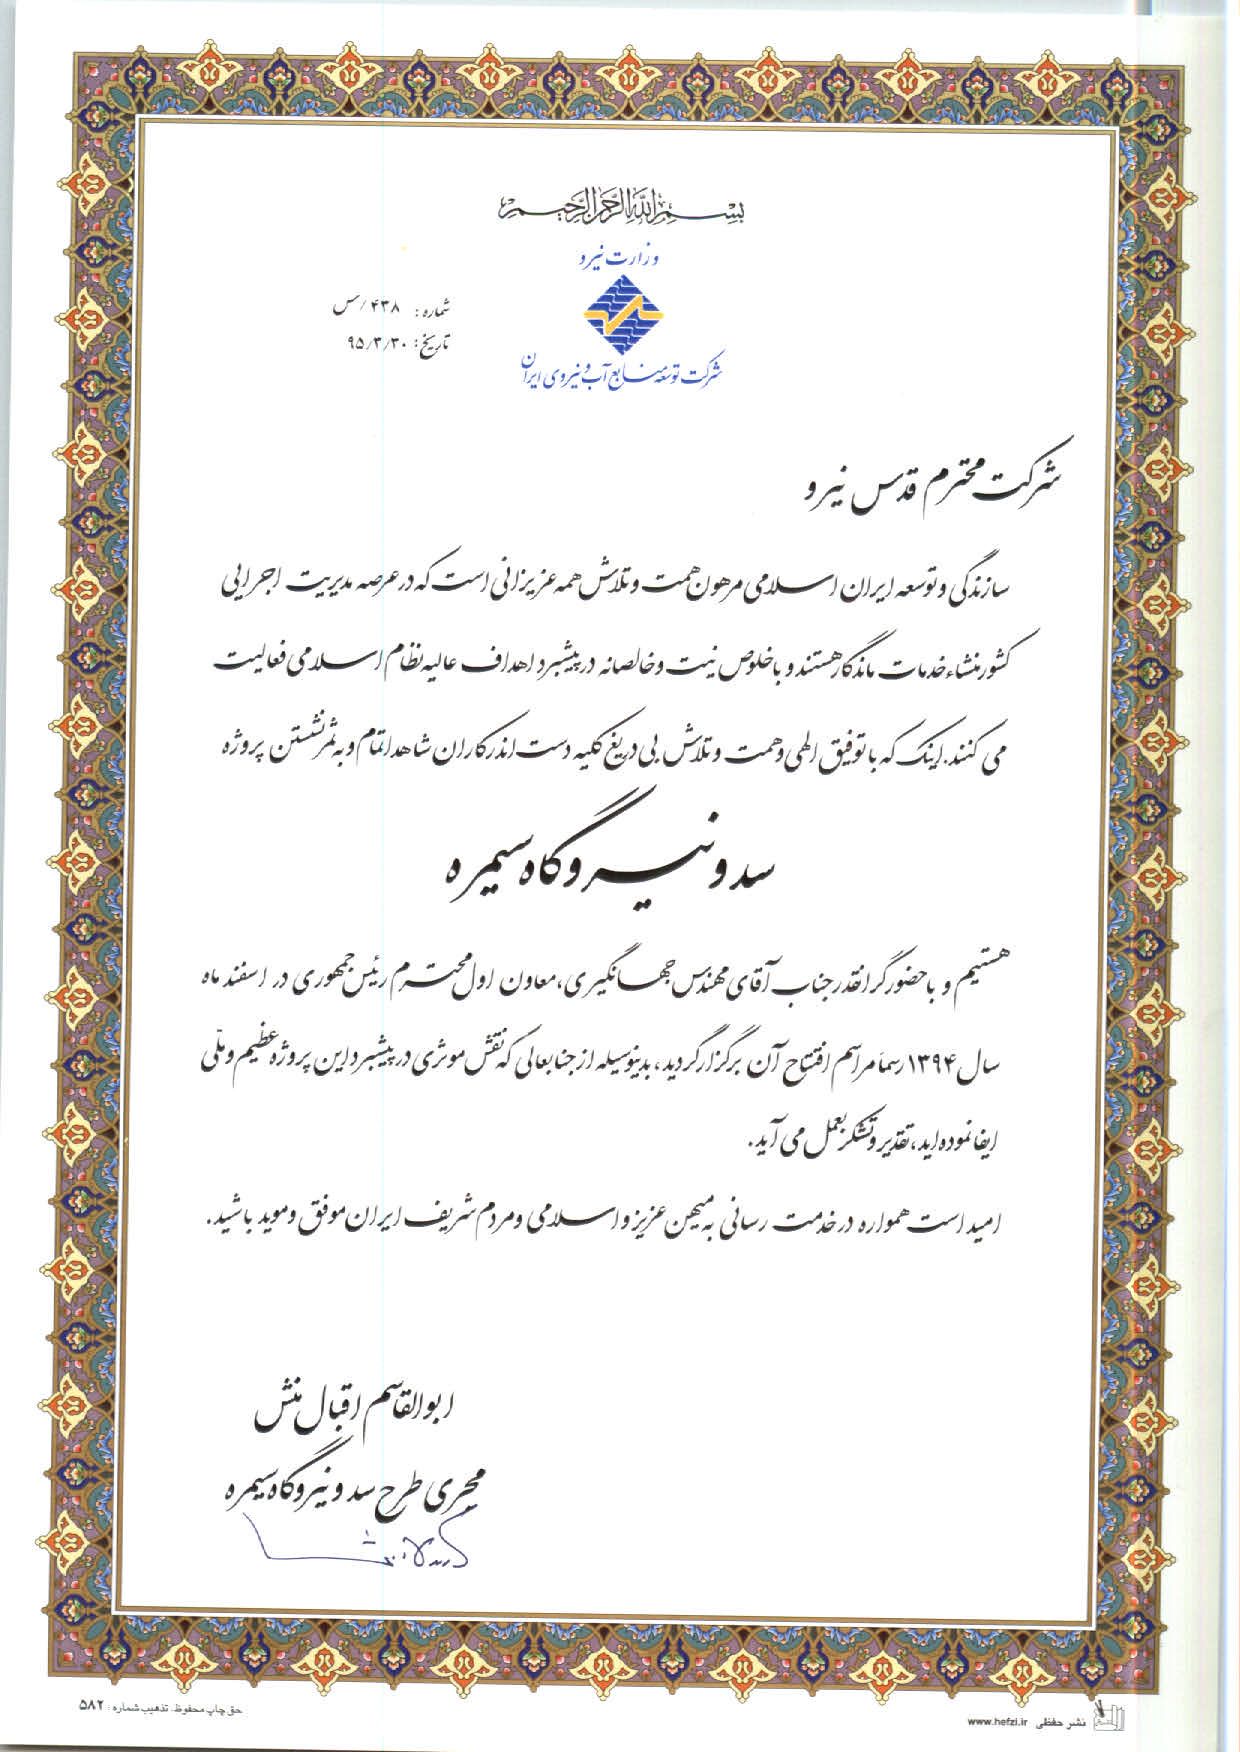 بسم الله الرحمن الرحیم
وزارت نیرو
شرکت توسعه منابع آب و نیروی ایران
شماره: ۴۳۸/س
تاریخ: ۹۵/۳/۳۰
شرکت محترم قدس نیرو
سازندگی و توسعه ایران اسلامی مرهون همت و تلاش همه عزیزانی است که در عرصه مدیریت اجرایی
کشور منشاء خدمات ماندگار هستند و با خلوص نیت و خالصانه در پیشبرد اهداف عالیه نظام اسلامی فعالیت
می کنند. اینک که با توفیق الهی و همت و تلاش بی دریغ کلیه دست اندرکاران شاهد اتمام و به ثمر نشستن پروژه
سد و نیروگاه سیمره
هستیم و با حضور گرانقدر جناب آقای مهندس جهانگیری، معاون اول محترم رئیس جمهوری در اسفند ماه
سال ۱۳۹۴ رسماً مراسم افتتاح آن برگزار گردید، بدینوسیله از جنابعالی که نقش موثری در پیشبرد این پروژه عظیم و ملّی
ایفا نموده اید، تقدیر و تشکر بعمل می آید.
امید است همواره در خدمت رسانی به میهن عزیز و اسلامی و مردم شریف ایران موفق و موید باشید.
ابوالقاسم اقبال منش
مجری طرح سد و نیروگاه سیمره
حق چاپ محفوظ. تذهیب شماره: ۵۸۲
نشر حفظی www.hefzi.ir